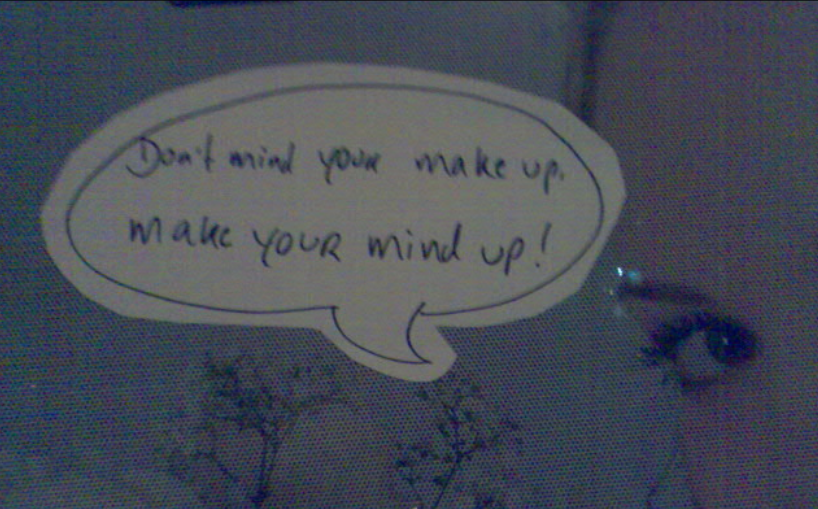 Don't mind your make up.
make YOUR mind up!